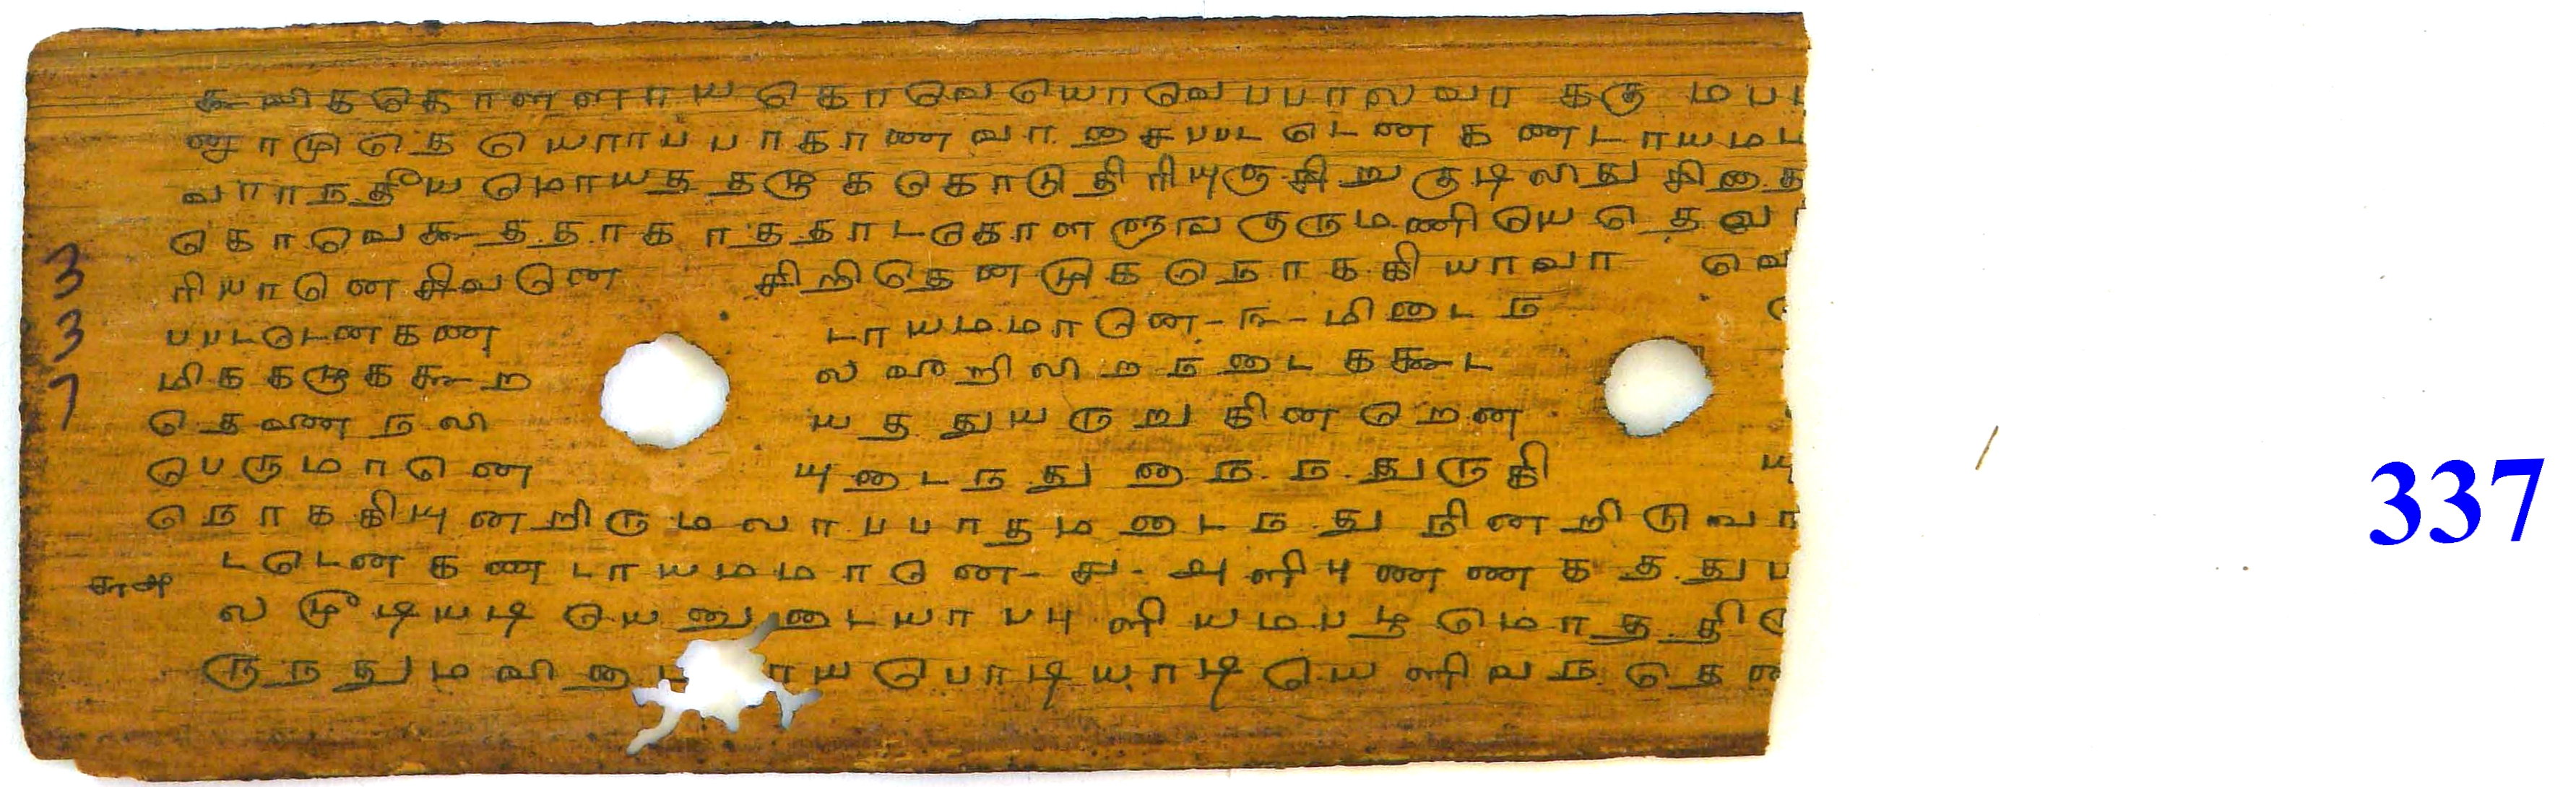 கூவிககொளளாயகொவெயொவெபபாலவா கரு மபப
ஞாமுதெயொாபபாகாணவா றைசபபடடெனகணடாயமம
வாாநதீயமொயதத தழுககொடுதிாியுருகிறுகுடிலிது சிதை
கொவெகூததாகாததாடகொளளுவகுருமணியெதெவ
ாியானெசிவனெ சிறிதெனமுகநொககியாவா வெ
பபடடெனகண டாயமமானெ-ந-மிடைந
மிககழுககூற லவூறிலிறநடைககூட
தெவணநலி யததுயருறுகினறென
பெருமானெ யுடைநதுநைநநதுருகி யு
நொககியுனறிருமலாபபாதமடைநது நினறிடுவா
டடெனகணடாயமமானெ-சு-அளிபுணணகததுப
லமூடியடியெனுடையாபபுளியமபழமொததிரு
ருநதுமவிடை ாயபொடியாடியெளிவநதென
3
3
7
337